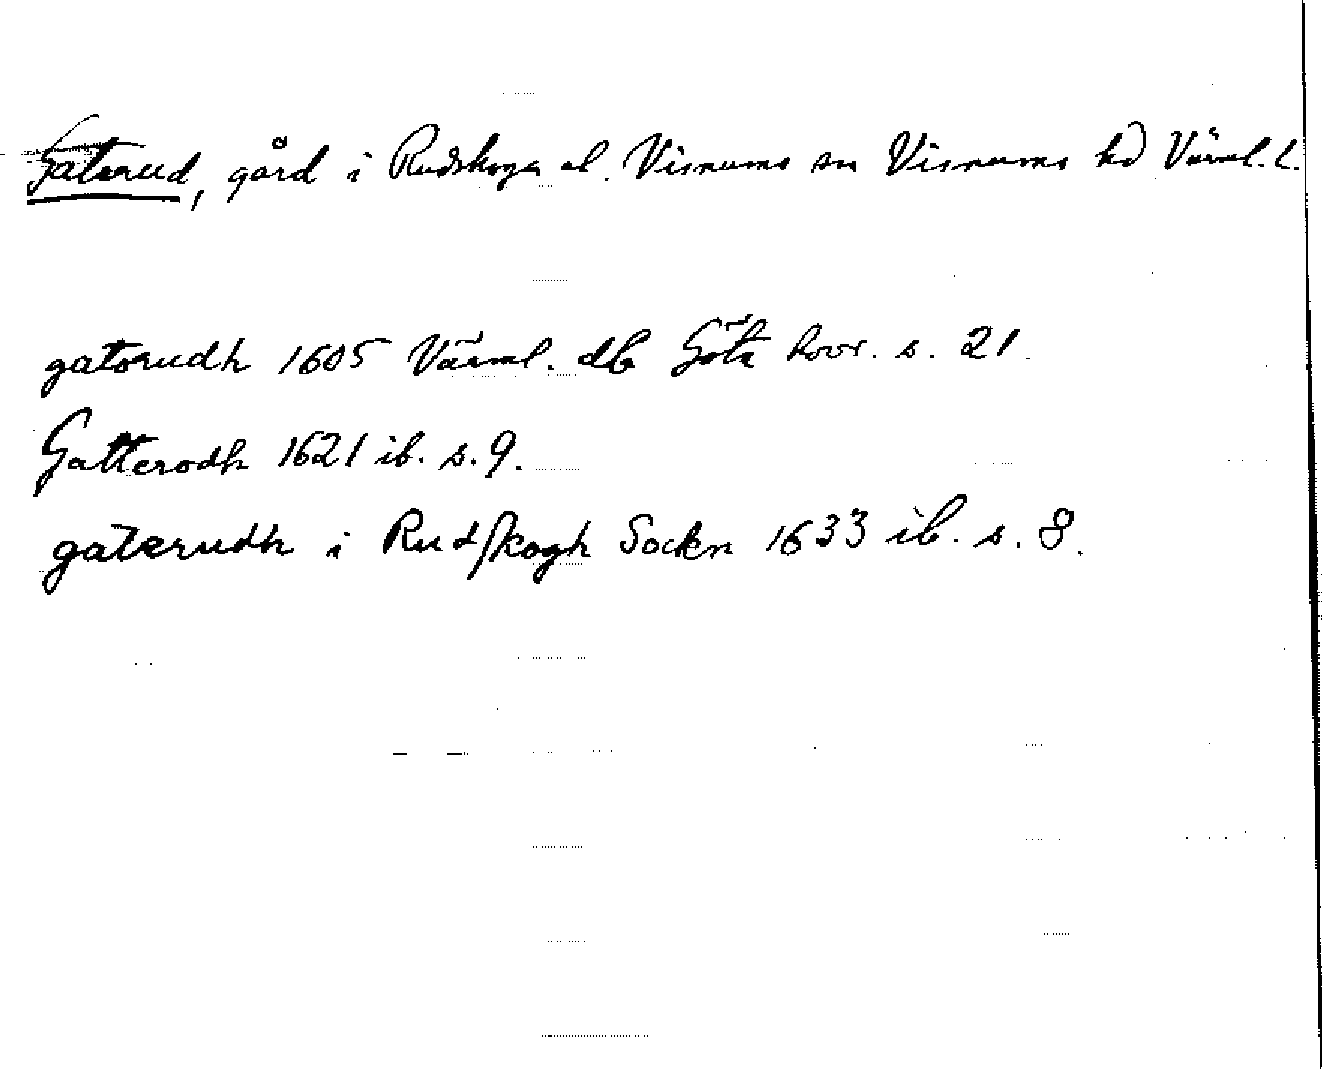 Gaterud, gård i Rudskoga el. Visnums sn Visnums hd Värml. l.
gatorudh 1605 Värml. db Göta hovr. s. 21.
Gatterodh 1621 ib. s. 9.
gaterudh i Rudskogh Sockn 1633 ib. s. 8.